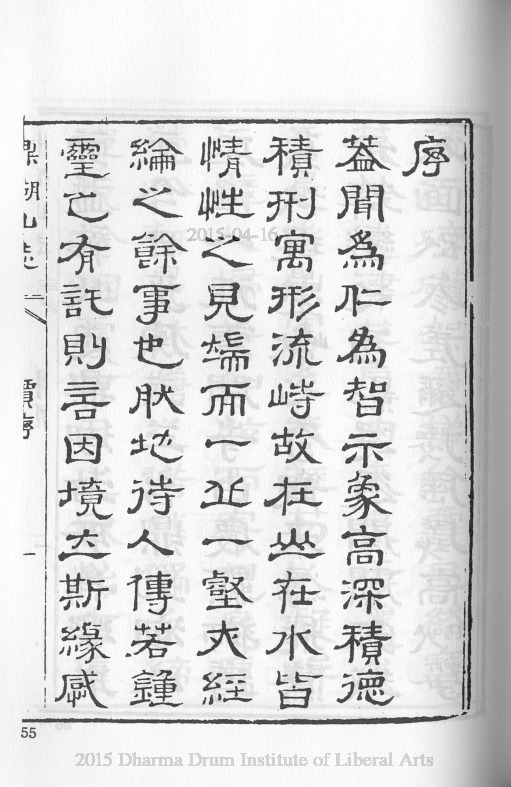 序
葢聞爲仁爲智示象高深積德
積刑寓形流峙故在山在水皆
情性之見端而一丘一壑大經
綸之餘事也肰地待人傳若鐘
靈已有託則言因境立斯緣感
鼎湖山志 序 一
55
2015-04-16
2015 Dharma Drum Institute of Liberal Arts